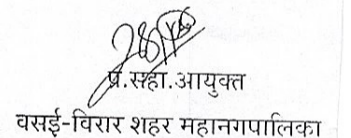 प्र.सहा.आयुक्त
वसई-विरार शहर महानगपालिका